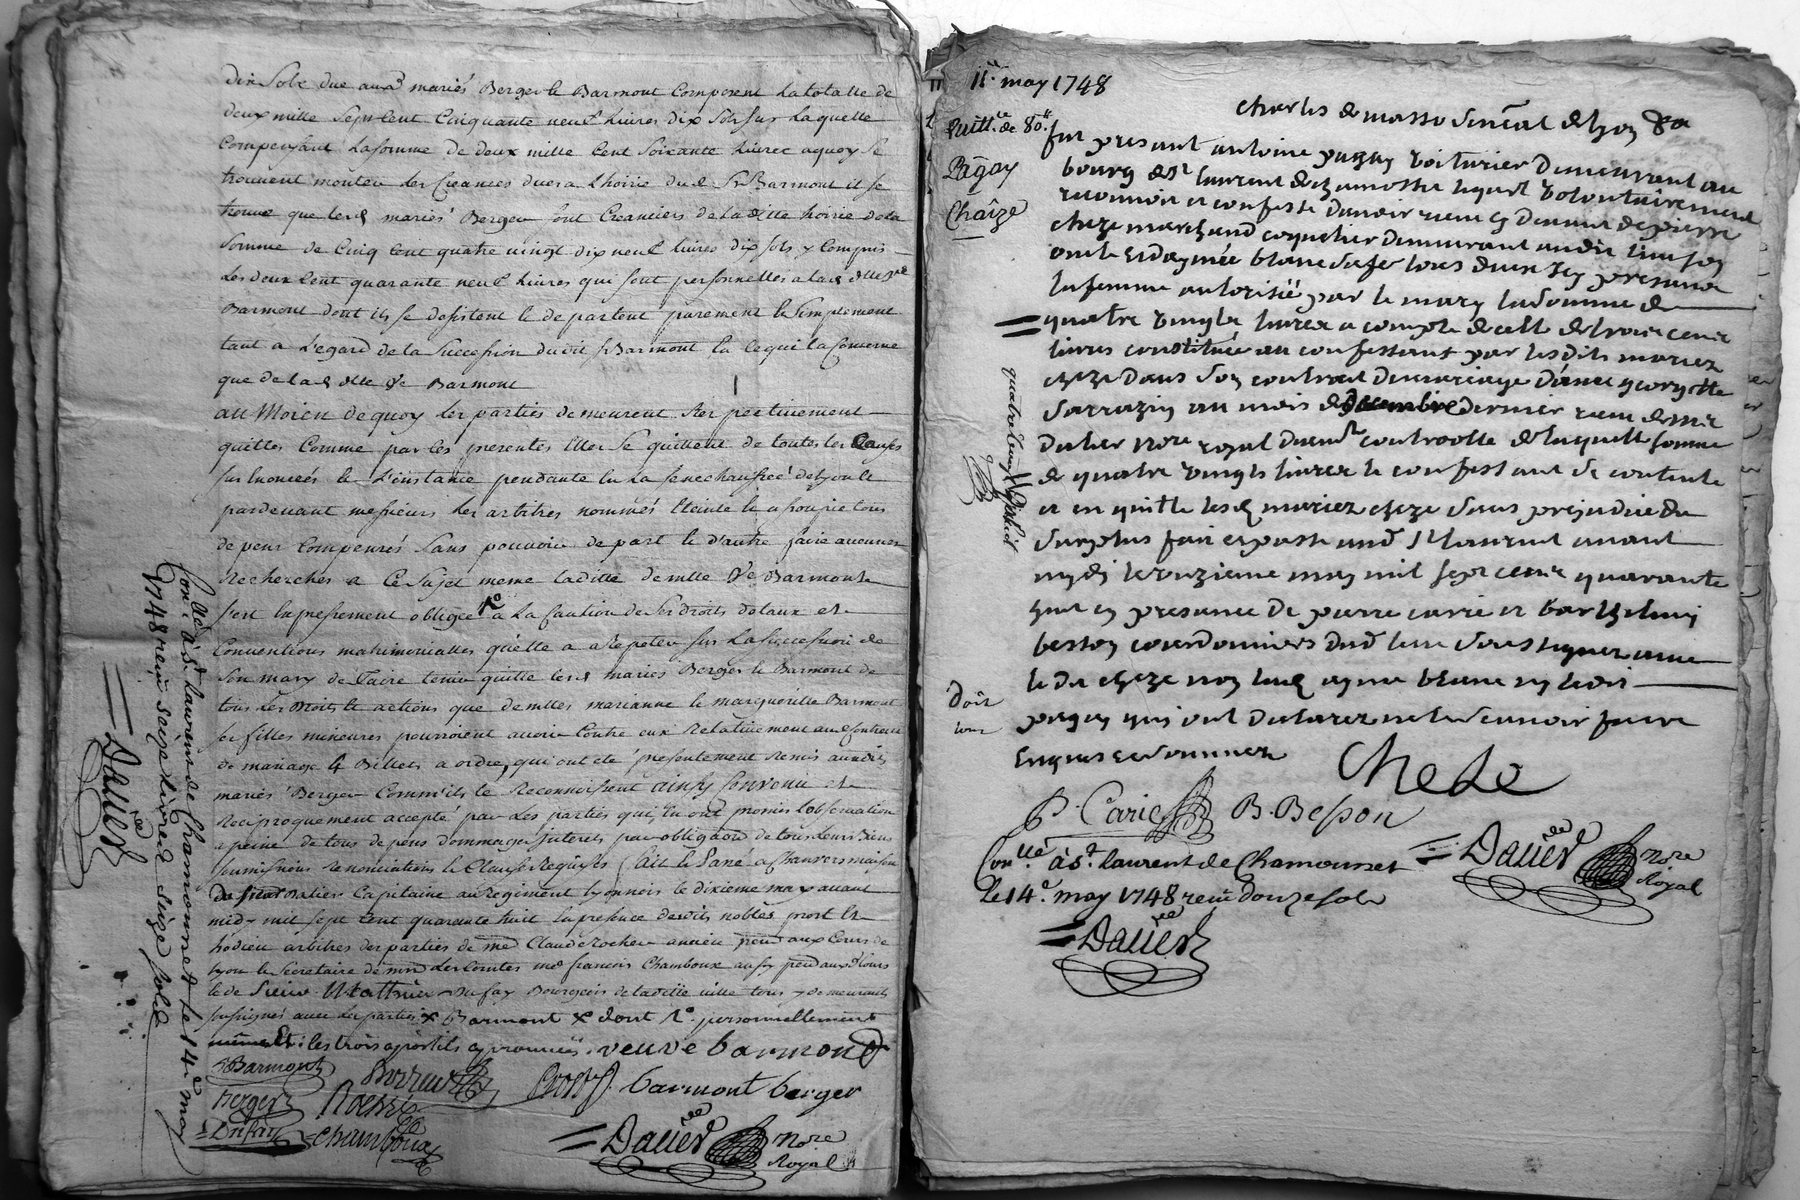 dix sols due aux d. mariés Berger & Barmont Composent la totalle de
deux mille Sept Cent Cinquante neuf Livres dix sols sur laquelle
Compensant la somme de deux mille Cent soixante Livres a quoy se
trouvent monter les Creances dues a l'hoirie du d. Sr Barmont il se
trouve que les d. mariés Berger sont Creanciers de la ditte hoirie de la
somme de Cinq Cent quatre vingt dix neuf Livres dix sols y Compris
Les deux Cent quarante neuf Livres qui sont personnelles a la d. dlle Ve
Barmont dont ils se desistent & departent purement & simplement
tant a L'egard de la Succession du dit Sr Barmont en ce qui la Concerne
que de la d. dlle Ve Barmont
au Moien de quoy les parties demeurent Respectivement
quittes Comme par les presentes Elles se quittent de toutes les Causes
sus Enoncées & L'instance pendante en la senechaussée de Lyon &
pardevant messieurs les arbitres nommés Eteinte & assoupie tous
depens Compensés sans pouvoir de part & d'autre faire aucunes
Recherches a Ce sujet meme la ditte demlle Ve Barmont
s'est Expressement obligée 1o a la Caution de ses droits dotaux et
Conventions matrimonialles qu'elle a a Repeter sur la succession de
son mary de faire tenir quitte les d. mariés Berger & Barmont de
tous les droits & actions que demlles marianne & marguerite Barmont
ses filles mineures pourroient avoir Contre eux Relativement aud. Contract
de mariage & Billets a ordre, qui ont été presentement Remis aux dits
mariés Berger Comm'ils le Reconnoissent ainsy Convenu et
Reciproquement accepté par les parties qui en ont promis l'observation
a peine de tous depens dommages interets par obligaon de tous leurs Biens
soumissions Renonciations & Clauses Requises fait & passé a maison
du sieur Capitaine au Regiment Lyonnois le dixieme may avant
midy mil sept Cent quarante huit En presence desdits nobles prost &
hodieu arbitres des parties de me Claude Rocher ancien proc aux Cours de
Lyon & Secretaire de mrs les Comtes me francois Chamboux aussy proc aux d. Cours
& de Sieur Dufay Bourgeois de la ditte ville tous y demeurants
soussignés avec les parties x Barmont x dont 1o personnellement
les trois apostils approuvées. veuve barmond
Barmont prost barmont berger
Berger
Dufay Chamboux
= Dauer Nore
Royal
Con.llé à St. Laurent de Chamousset le 14e may
1748 reçu seize Livres seize sols
= Dauer
11e. may 1748
Charles de masso Senéal de Lyon &a
Quitt.ce de 80.ll
Pagay
Chaîze
fut present antoine pagay voiturier demeurant au
bourg de St laurent de chamosset lequel volontairement
reconnoit et confesse d'avoir receu cy devant de pierre
cheze marchand coquetier demeurant audit lieu son
oncle et d'aymée blanc sa fe tous deux icy presents
la femme autorisée par le mary la somme de
quatre vingts livres a compte de celle de trois cent
livres constituée au confessant par lesdits mariez
cheze dans son contrat de mariage d'avec georgette
sarrazin au mois de decembre dernier receu de me
dalier nore royal duemt controollé de laquelle somme
de quatre vingts livres le confessant se contente
et en quitte lesd. mariez cheze sans prejudice du
surplus fait et passé aud. St laurent avant
mydi le onzieme may mil sept cent quarante
huit en presence de pierre carrie et barthelemy
besson cordonniers dud. lieu soussignez avec
le dit cheze non lad. aymée blanc ny ledit
pagay qui ont declarez ne le scavoir faire
enquis et sommez
Doit
Cheze
P. Carie B. Besson
Con.llé à St. laurent de Chamousset
le 14e. may 1748 reçu douze sols
= Dauer
= Dauer Nore
Royal